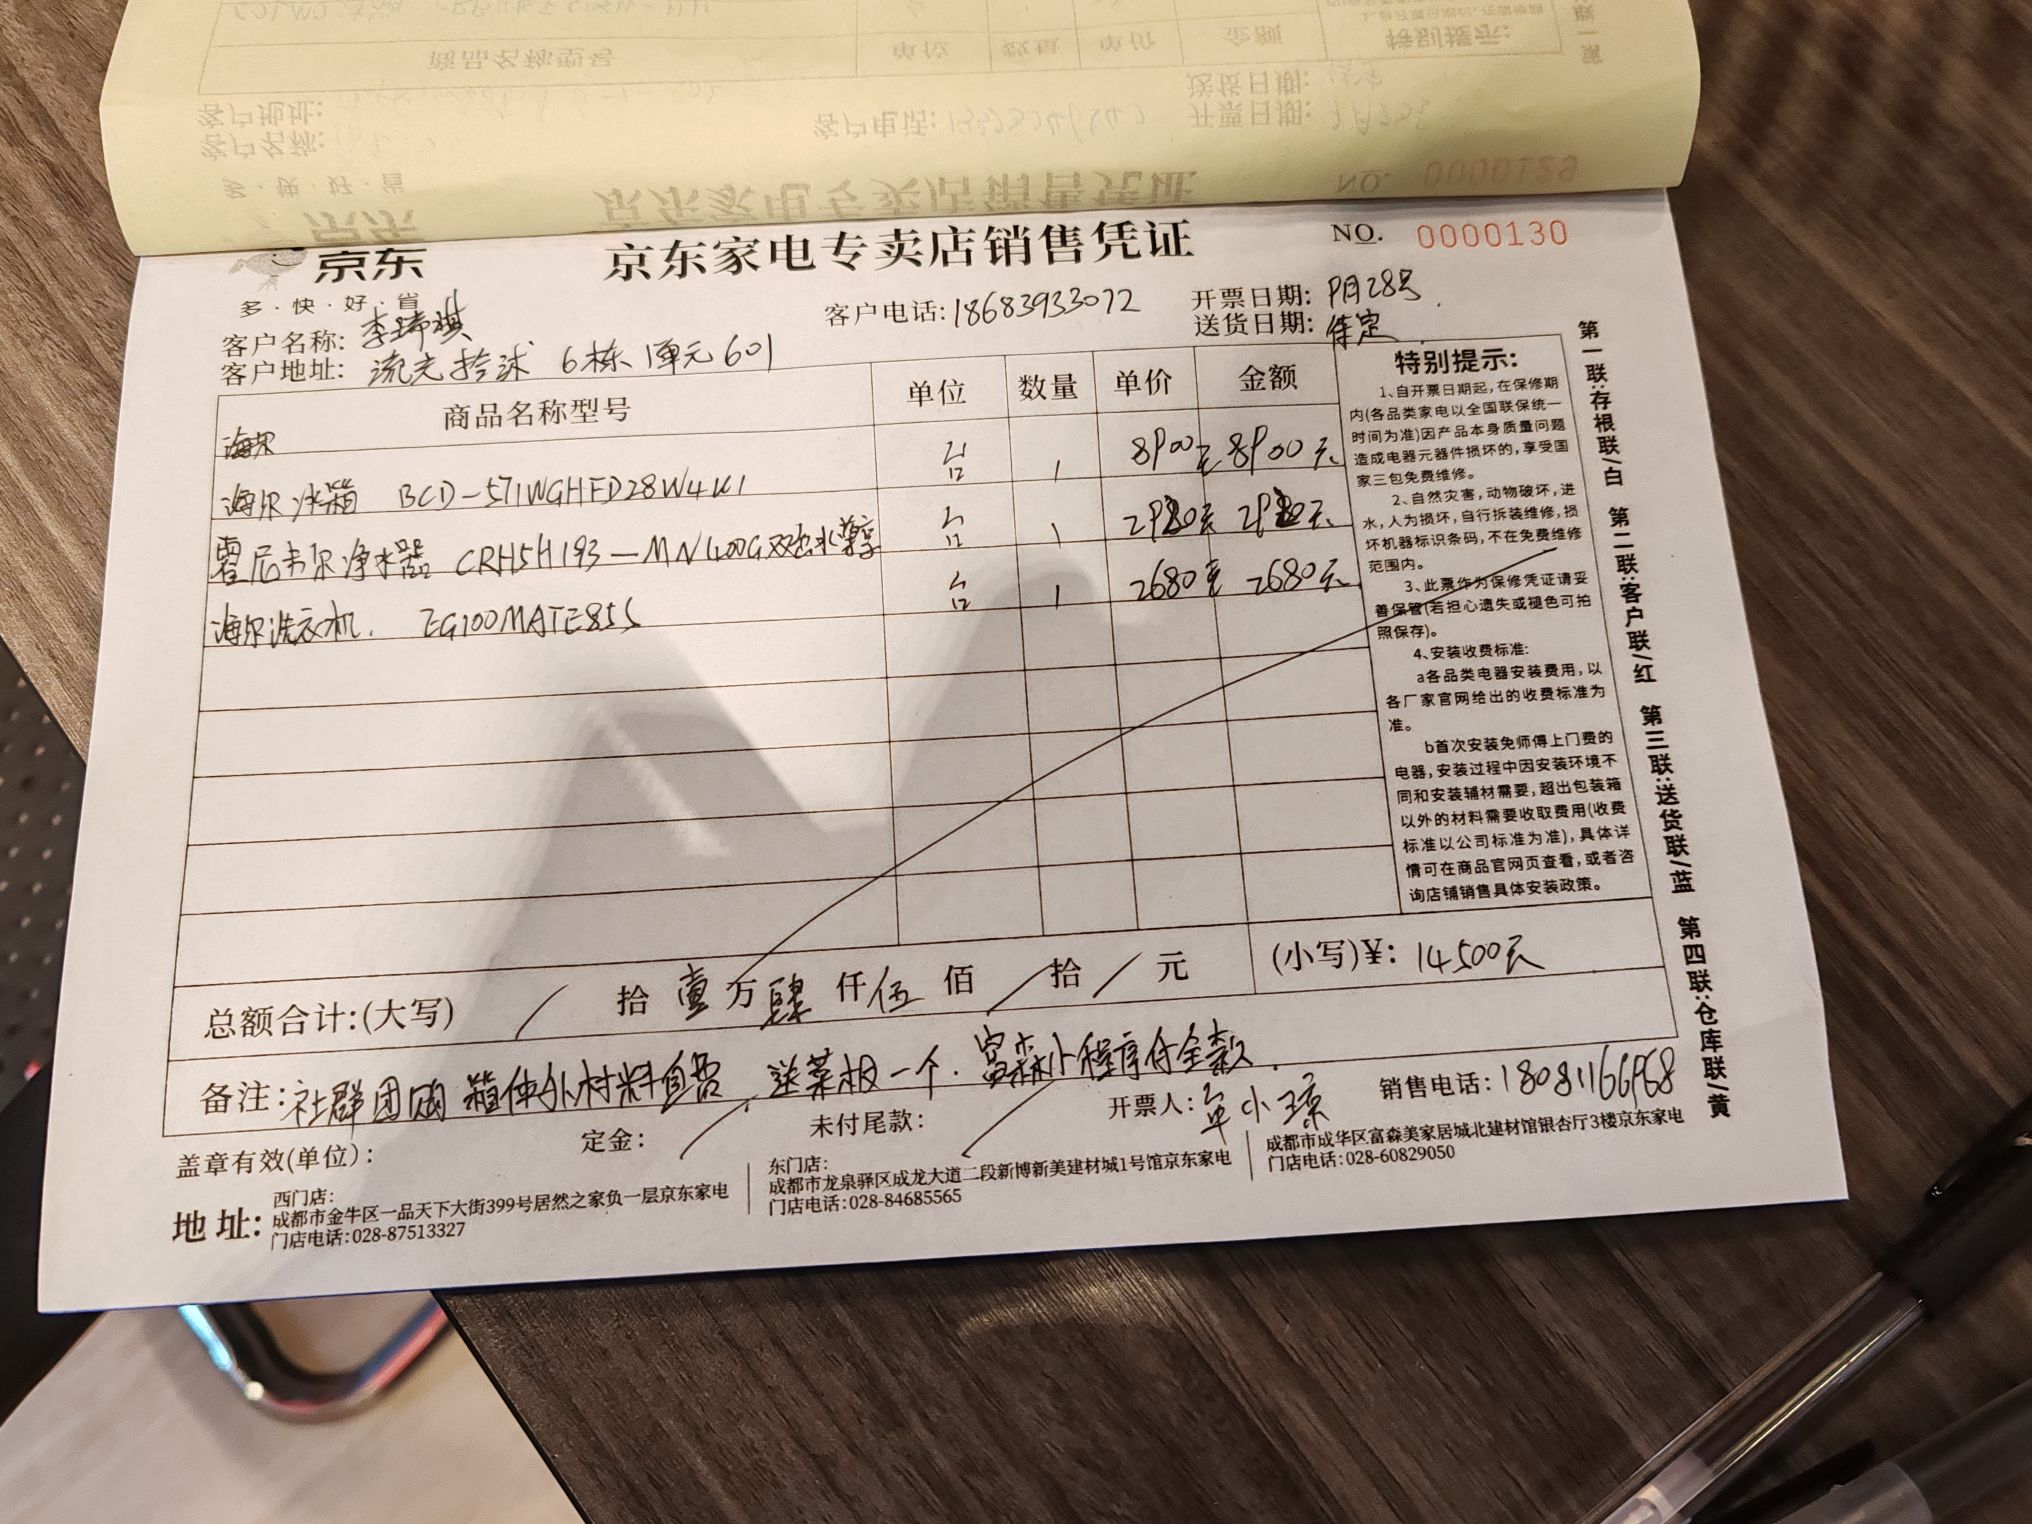 京东
多·快·好·省
京东家电专卖店销售凭证
NO. 0000130
客户名称:李瑞琪
客户电话:18683933072
开票日期:9月28号
送货日期:待定
客户地址:流光拾 6栋1单元601
商品名称型号 单位 数量 单价 金额
海尔
海尔冰箱 BCD-571WGHFD28W4U1 台 1 8900元 8900元
霍尼韦尔净水器 CRH5H193-MN400G双出水尊享 台 1 2920元 2920元
海尔洗衣机. EG100MATE85S 台 1 2680元 2680元
特别提示:
1、自开票日期起,在保修期
内(各品类家电以全国联保统一
时间为准)因产品本身质量问题
造成电器元器件损坏的,享受国
家三包免费维修。
2、自然灾害,动物破坏,进
水,人为损坏,自行拆装维修,损
坏机器标识条码,不在免费维修
范围内。
3、此票作为保修凭证请妥
善保管(若担心遗失或褪色可拍
照保存)。
4、安装收费标准:
a各品类电器安装费用,以
各厂家官网给出的收费标准为
准。
b首次安装免师傅上门费的
电器,安装过程中因安装环境不
同和安装辅材需要,超出包装箱
以外的材料需要收取费用(收费
标准以公司标准为准),具体详
情可在商品官网页查看,或者咨
询店铺销售具体安装政策。
第一联:存根联/白 第二联:客户联/红 第三联:送货联/蓝 第四联:仓库联/黄
总额合计:(大写) / 拾 壹 万 肆 仟 伍 佰 / 拾 / 元 (小写)¥: 14500元
备注:社群团购 箱体外材料自费, 送菜板一个. 富森小程序付全款.
盖章有效(单位):
定金: /
未付尾款: /
开票人: 小琼
销售电话:18081166968
地 址:
西门店:
成都市金牛区一品天下大街399号居然之家负一层京东家电
门店电话:028-87513327
东门店:
成都市龙泉驿区成龙大道二段新博新美建材城1号馆京东家电
门店电话:028-84685565
成都市成华区富森美家居城北建材馆银杏厅3楼京东家电
门店电话:028-60829050